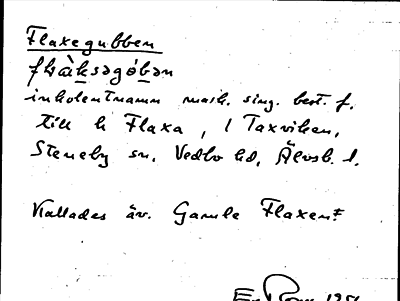 Flaxegubben
flàksəgóbən
inkolentnamn mask. sing. best. f.
till h Flaxa, i Taxviken,
Steneby sn, Vedbo hd, Älvsb. l.
Kallades äv. Gamle Flaxen